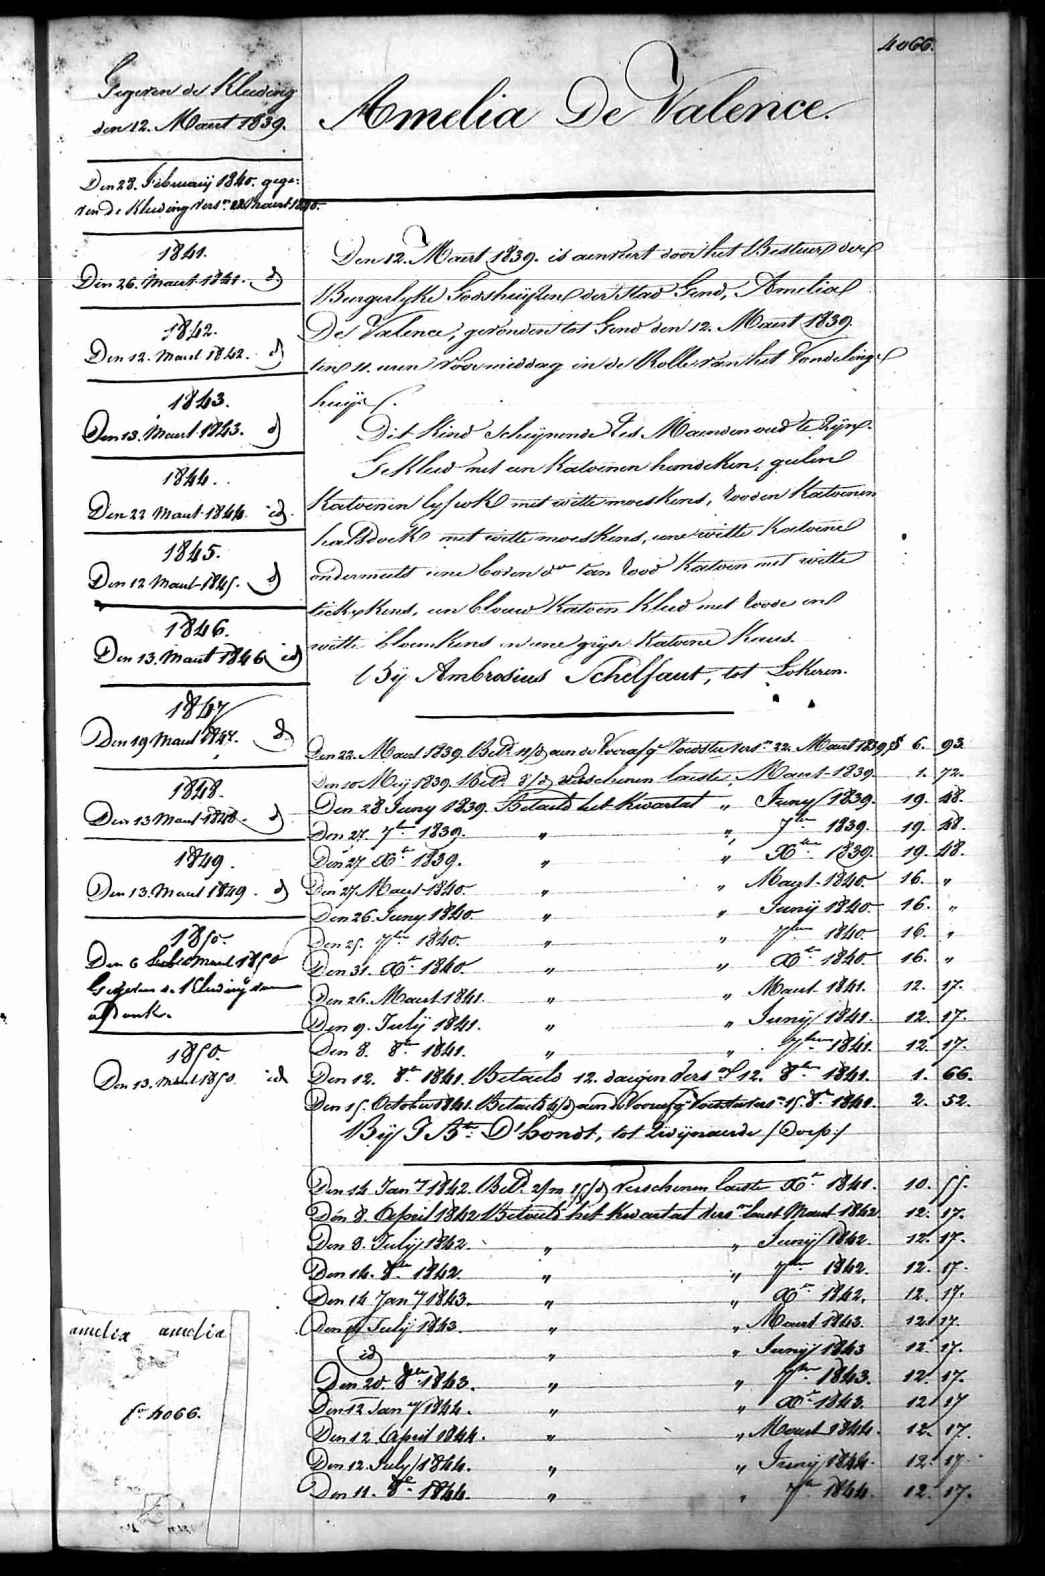 4066.
Gegeven de Kleeding
den 12. Maart 1839.
Den 28. Februarij 1840. gege-
ven de Kleeding vers.n 12 Maart 1840.
1841.
Den 26. Maart 1841. id
1842.
Den 12. Maart 1842. id
1843.
Den 13. Maart 1843. id
1844.
Den 22 Maart 1844. id.
1845.
Den 12 Maart 1845. id
1846.
Den 13. Maart 1846 id
1847
Den 19 Maart 1847. id.
1848.
Den 13 Maart 1848. id
1849.
Den 13. Maart 1849. id
1850.
Den 6 Maart 1850
Gegeven de Kleeding
1850.
Den 13. Maart 1850. id
amelia amelia
f.o 4066.
Amelia De Valence.
Den 12. Maart 1839. is aenveert door het Bestuer der
Burgerlyke Godshuyzen der Stad Gend, Amelia
De Valence, gevonden tot Gend den 12. Maart 1839.
ten 11. uren Voormiddag in de Rolle van het Vondeling-
huys.
Dit Kind schynende zes Maenden oud te zyn.
Gekleed met een Katoenen hemdeken, geelen
Katoenen lyfrok met witte moeskens, rooden Katoenen
halsdoek met witte moeskens, eene witte Katoene
ondermuts eene boven d.o van rood Katoen met witte
tickxkens, een blauw Katoen Kleed met roode en
witte bloemkens en eene gryse Katoene Kous.
Bij Ambrosius Schelfaut, tot Lokeren.
Den 22. Maart 1839. Bet.d 11/d aen de Vooraf.ge Voedster vers.n 22. Maart 1839 f 6. 93.
Den 10 Meij 1839. Bet.d 8/d verschenen laeste Maart 1839. 1. 72.
Den 28 Juny 1839. Betaeld het Kwartaal " Juny 1839. 19. 48.
Den 27. 7.ber 1839. " " 7.ber 1839. 19. 48.
Den 27. X.br 1839. " " X.ber 1839. 19. 48.
Den 27 Maart 1840. " " Maart 1840. 16. "
Den 26. Juny 1840 " " Junij 1840. 16. "
Den 25. 7.ber 1840. " " 7.ber 1840. 16. "
Den 31. X.br 1840. " " X.br 1840 16. "
Den 26. Maart 1841. " " Maart 1841. 12. 17.
Den 9. Julij 1841. " " Junij 1841. 12. 17.
Den 8. 8.br 1841. " " 7.ber 1841. 12. 17.
Den 12. 8.br 1841. Betaeld 12. daegen vers.n 12. 8.br 1841. 1. 66.
Den 15. October 1841. Betaeld 4/d aen de vooraf.ge Voedster vers.n 15. 8.br 1841. 2. 52.
Bij J. B.te D'hondt, tot Zwijnaerde /Dorp:/
Den 14. Jan.y 1842. Bet.d 2/m 15/d verschenen laeste X.br 1841. 10. 55.
Den 8. April 1842 Betaeld het Kwartaal vers.n laest Maart 1842 12. 17.
Den 8. Julij 1842. " " Junij 1842. 12. 17.
Den 14. 8.br 1842. " " 7.ber 1842. 12. 17.
Den 14 Jan.y 1843. " " X.br 1842. 12. 17.
Den 14 Julij 1843. " " Maart 1843. 12 17
id " " Junij 1843 12. 17.
Den 20. 8.br 1843. " " 7.ber 1843. 12. 17.
Den 12 Jan.y 1844. " " X.br 1843. 12 17
Den 12 April 1844. " " Maart 1844. 12. 17.
Den 12. July 1844. " " Junij 1844. 12. 17
Den 11. 8.br 1844. " " 7.br 1844. 12. 17.